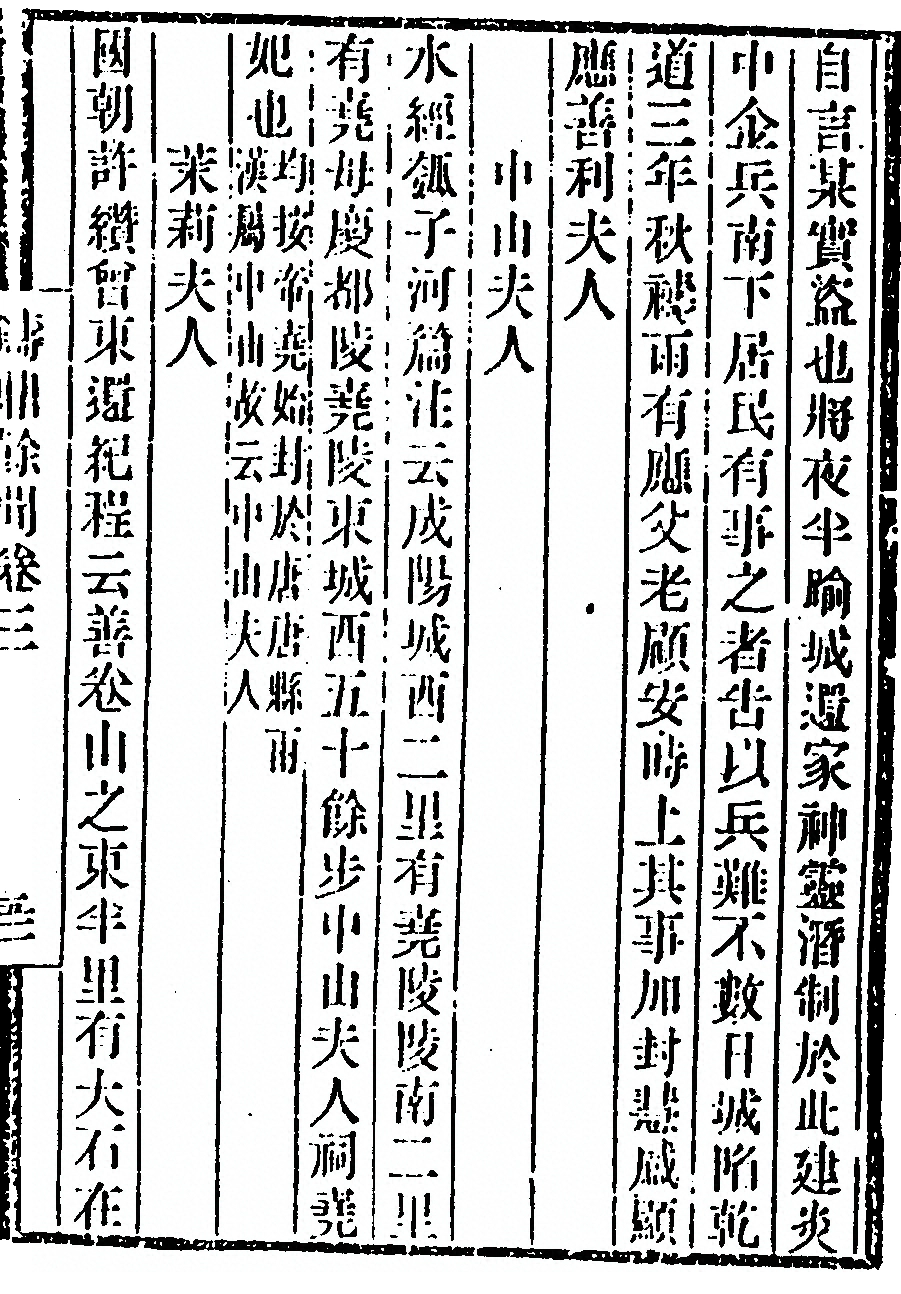 自言某實盜也將夜半踰城還家神靈潛制於此建炎
中金兵南下居民有事之者告以兵難不數日城陷乾
道三年秋禱雨有應父老顧安時上其事加封慧感顯
應善利夫人
中山夫人
水經瓠子河篇注云成陽城西二里有堯陵陵南二里
有堯母慶都陵堯陵東城西五十餘步中山夫人祠堯
妃也
均按帝堯始封於唐唐縣兩
漢屬中山故云中山夫人
茉莉夫人
國朝許纘曾東還紀程云善卷山之東半里有大石在
卷三